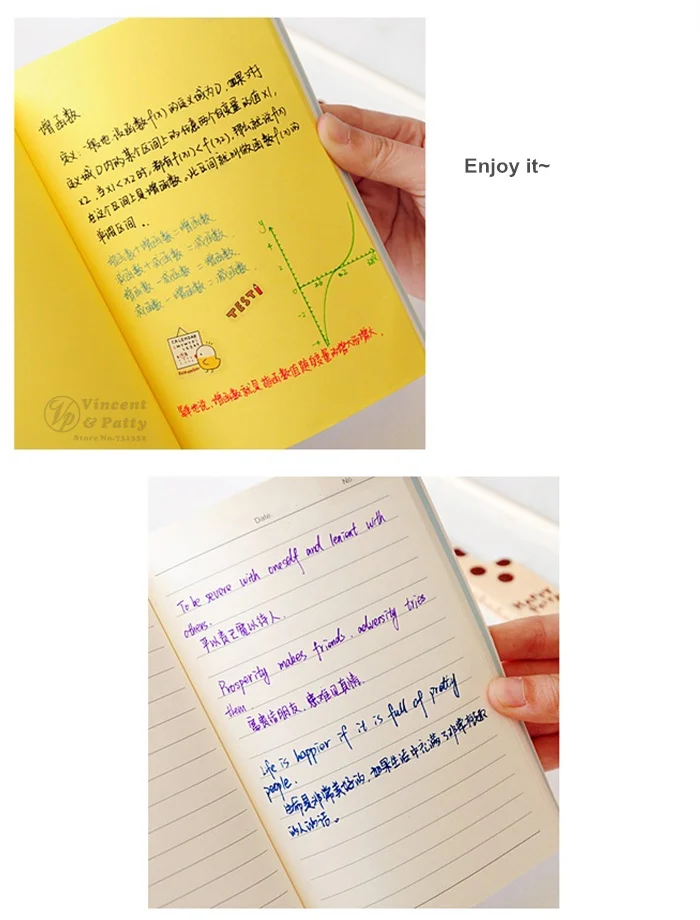 增函数
定义:一般地,设函数f(x)的定义域为D,如果对于
定义域D内的某个区间上的任意两个自变量的值x1,
x2,当x1<x2时,都有f(x1)<f(x2),那么就说f(x)
在这个区间上是增函数。此区间就叫做函数f(x)的
单增区间。
增函数+增函数=增函数
减函数+减函数=减函数
增函数-减函数=增函数
减函数-增函数=减函数
y
TEST!
CALENDAR
Vincent
& Patty
Store No.731332
Enjoy it~
Date.
No.
To be severe with oneself and lenient with
others.
Prosperity makes friends, adversity tries
them
富贵结朋友,患难见真情.
Life is happier if it is full of pretty
people.
生命是非常美好的,如果生活中充满了非常
的人的话。